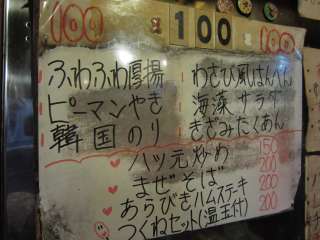 100 100 100
ふわふわ厚揚
ピーマンやき
韓国のり
わさび風はんぺん
海藻サラダ
きざみたくあん
ハツ元炒め 150
まぜそば 200
あらびきハムステーキ 200
つくねセット(温玉付) 200